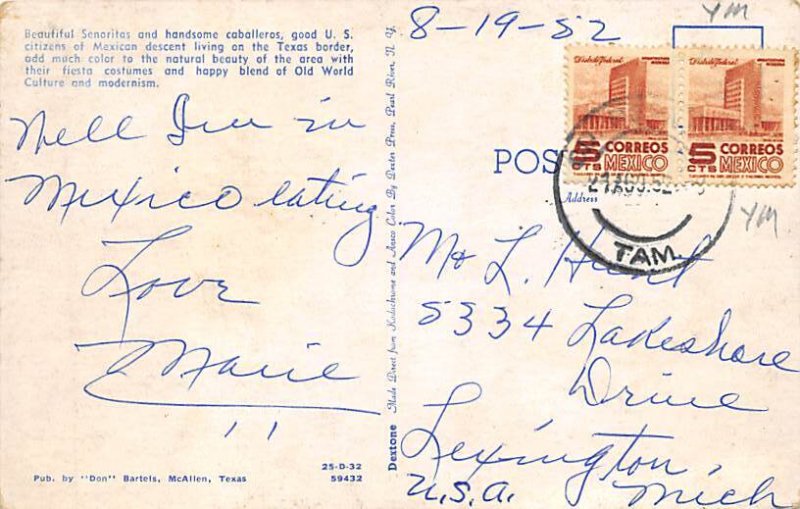 Beautiful Senoritas and handsome caballeros, good U. S.
citizens of Mexican descent living on the Texas border,
add much color to the natural beauty of the area with
their fiesta costumes and happy blend of Old World
Culture and modernism.
Well I'm in
Mexico eating
Love
Marie
Pub. by "Don" Bartels, McAllen, Texas
25-D-32
59432
Dextone Made Direct from Kodachrome and Ansco Color By Dexter Press, Pearl River, N. Y.
8-19-52
YM
Distrito Federal
5 CTS CORREOS
MEXICO
Distrito Federal
5 CTS CORREOS
MEXICO
POS
21 AGO. 52
TAM.
YM
Address
Mr L. Hunt
5334 Lakeshore
Drive
Lexington, Mich
U.S.A.